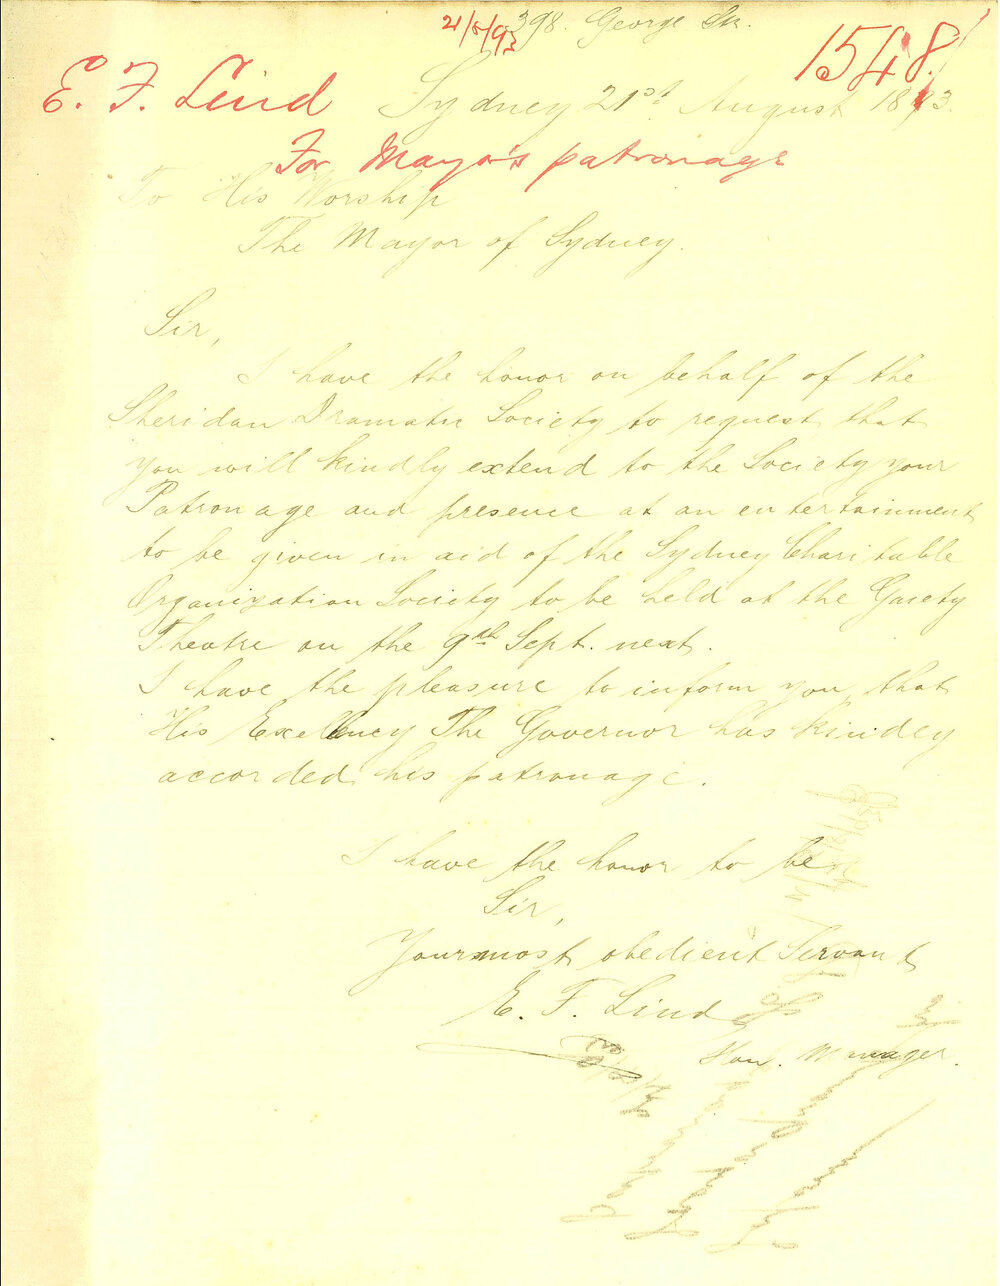 21/8/93 398. George St.
1548.
E. F. Lind Sydney 21st August 1893.
For Mayor's patronage
To His Worship
The Mayor of Sydney.
Sir,
I have the honor on behalf of the
Sheridan Dramatic Society to request that
you will kindly extend to the Society your
Patronage and presence at an entertainment
to be given in aid of the Sydney Charitable
Organization Society to be held at the Gaiety
Theatre on the 9th Sept. next.
I have the pleasure to inform you that
His Excellency The Governor has kindly
accorded his patronage.
I have the honor to be
Sir,
Your most obedient Servant
E. F. Lind
Hon. Manager.